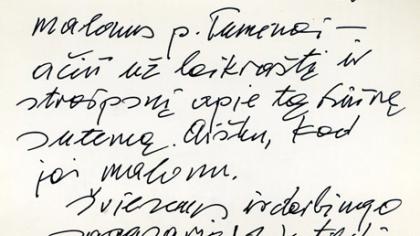 malonus p. Tumėnai –
ačiū už laikraštį ir
straipsnį apie tą
sutemą. Aišku, kad
jai malonu.
Šviesaus ir darbingo